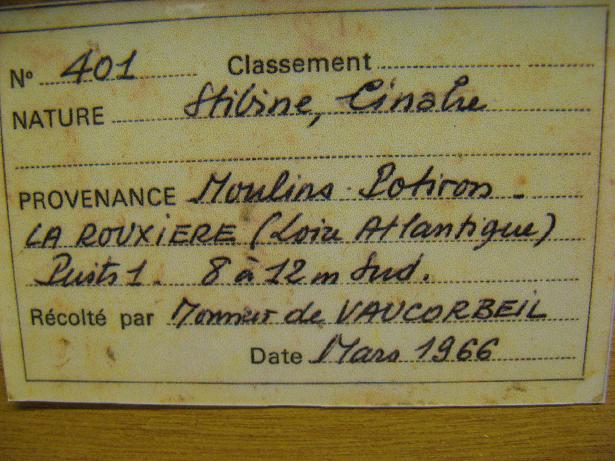 N° 401 Classement
NATURE Stibine, Cinabre
PROVENANCE Moulins Potiron -
LA ROUXIERE (Loire Atlantique)
Puits 1. 8 à 12 m Sud.
Récolté par de VAUCORBEIL
Date Mars 1966